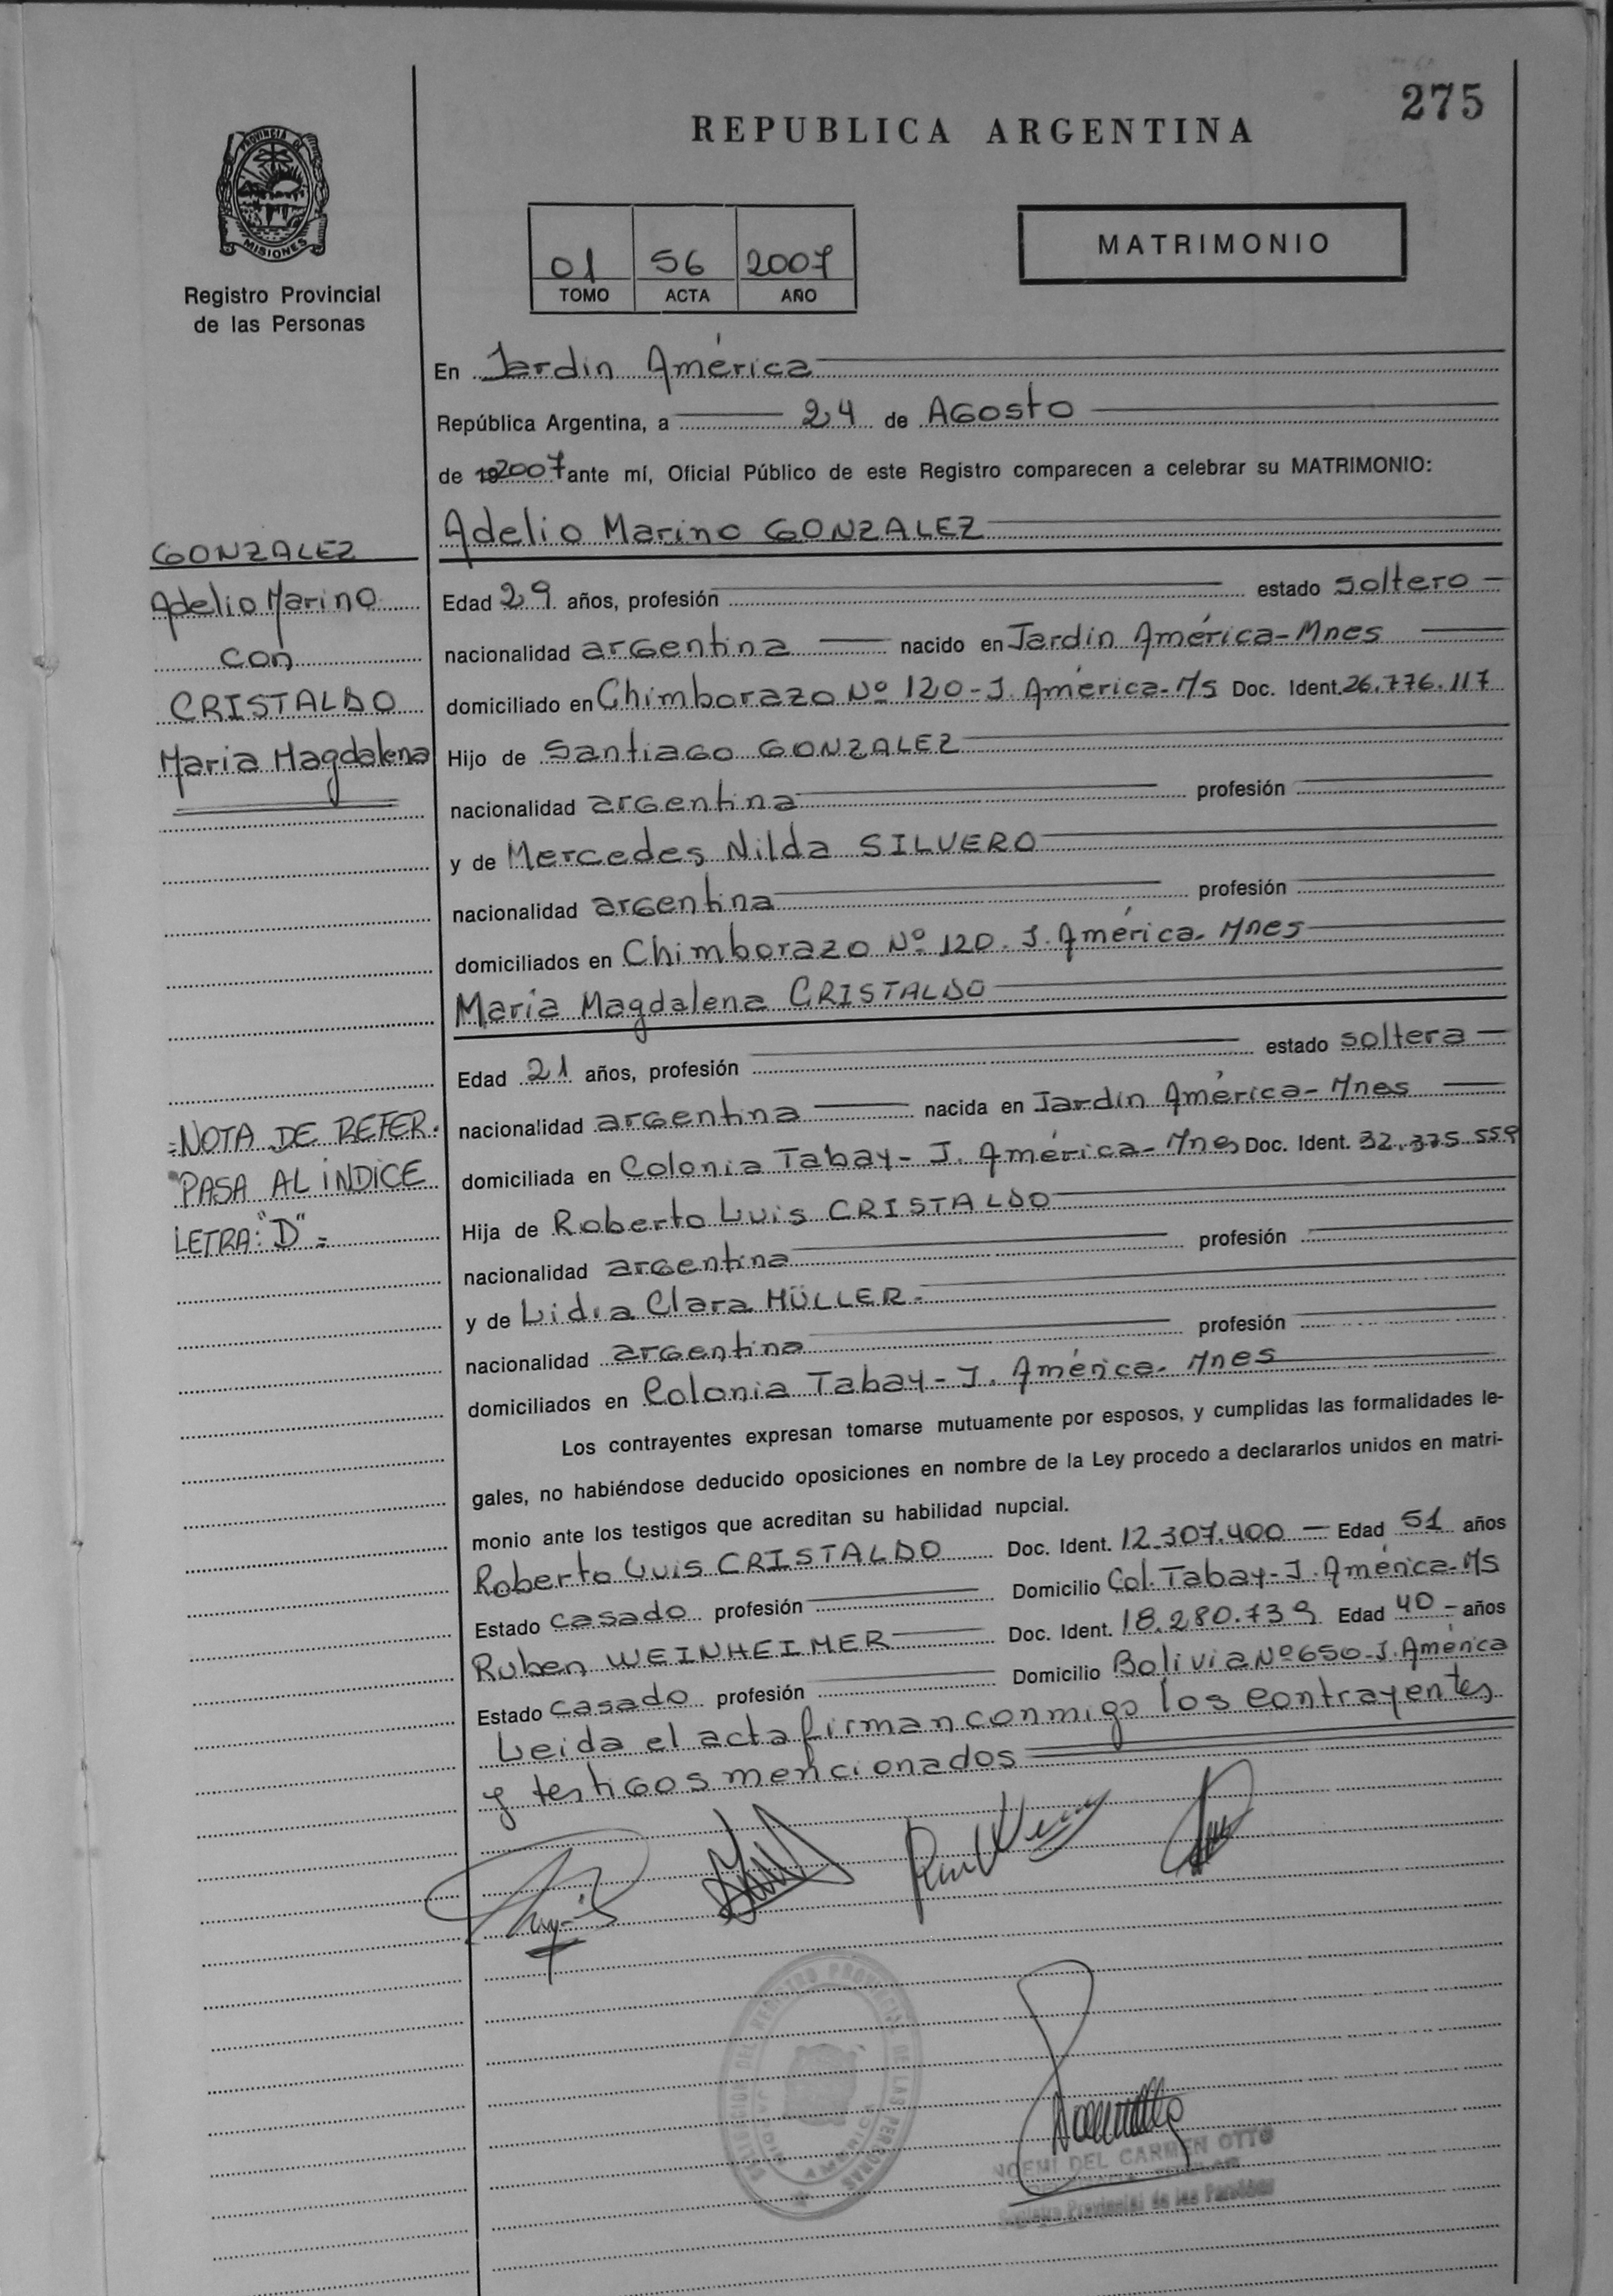 275
REPUBLICA ARGENTINA
PROVINCIA DE
MISIONES
Registro Provincial
de las Personas
01 56 2007
TOMO ACTA AÑO
MATRIMONIO
En Jardin América
República Argentina, a 24 de Agosto
de 192007 ante mí, Oficial Público de este Registro comparecen a celebrar su MATRIMONIO:
Adelio Marino GONZALEZ
GONZALEZ
Adelio Marino
con
CRISTALDO
Maria Magdalena
Edad 29 años, profesión estado soltero
nacionalidad argentina nacido en Jardin América-Mnes
domiciliado en Chimborazo Nº 120-J. América-M/s Doc. Ident. 26.776.117
Hijo de Santiago GONZALEZ
nacionalidad argentina profesión
y de Mercedes Nilda SILVERO
nacionalidad argentina profesión
domiciliados en Chimborazo Nº 120. J. América. Mnes
María Magdalena CRISTALDO
Edad 21 años, profesión estado soltera
nacionalidad argentina nacida en Jardin América-Mnes
domiciliada en Colonia Tabay- J. América- Mnes Doc. Ident. 32.375.559
Hija de Roberto Luis CRISTALDO
nacionalidad argentina profesión
y de Lidia Clara MÜLLER.
nacionalidad argentina profesión
domiciliados en Colonia Tabay- J. América- Mnes
=NOTA DE REFER.
"PASA AL ÍNDICE
LETRA: "D" =
Los contrayentes expresan tomarse mutuamente por esposos, y cumplidas las formalidades le-
gales, no habiéndose deducido oposiciones en nombre de la Ley procedo a declararlos unidos en matri-
monio ante los testigos que acreditan su habilidad nupcial.
Roberto Luis CRISTALDO Doc. Ident. 12.307.400 Edad 51 años
Estado casado profesión Domicilio Col. Tabay-J. América-M/s
Ruben WEINHEIMER Doc. Ident. 18.280.739 Edad 40 años
Estado casado profesión Domicilio Bolivia Nº 650-J. América
Leida el acta firman conmigo los contrayentes
y testigos mencionados
DELEGACION DEL REGISTRO PROVINCIAL DE LAS PERSONAS
JARDIN AMERICA
NOEMI DEL CARMEN OTTO
Registro Provincial de las Personas